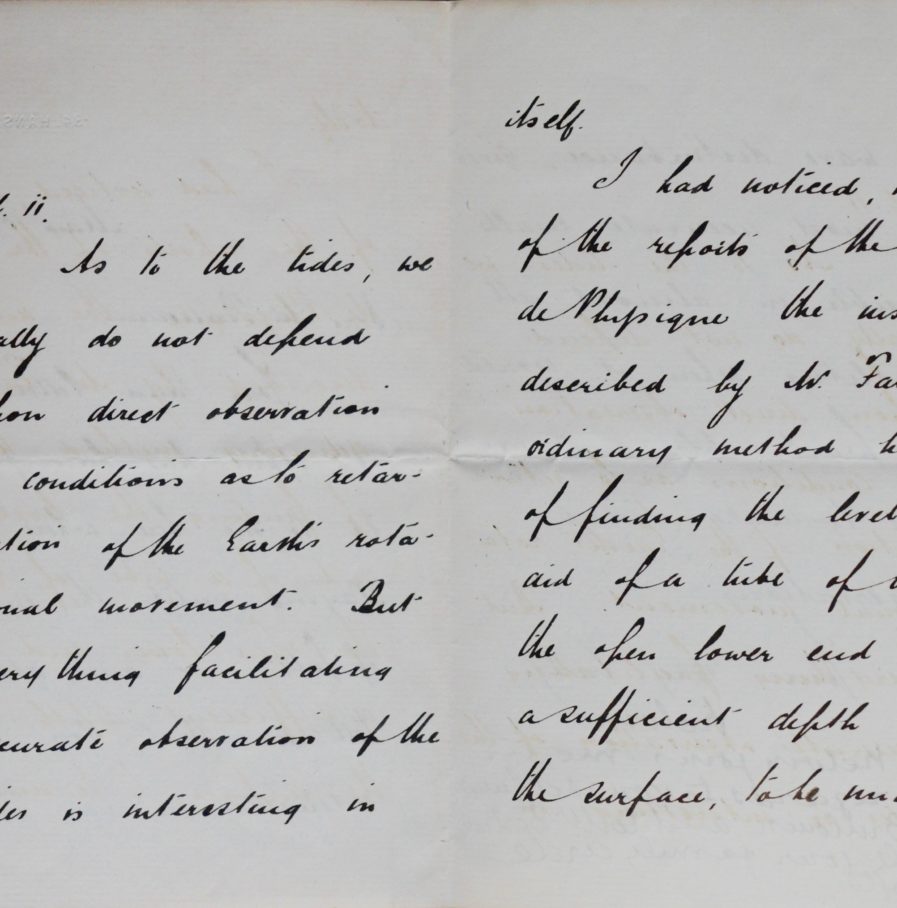 ii.
As to the tides, we
ally do not depend
on direct observation
conditions as to retar-
tion of the Earth's rota-
onal movement. But
ery thing facilitating
curate observation of the
des is interesting in
itself.
I had noticed,
of the reports of the
de Physique the ins
described by M. Fa
ordinary method
of finding the level
aid of a tube of
the open lower end
a sufficient depth
the surface, to be